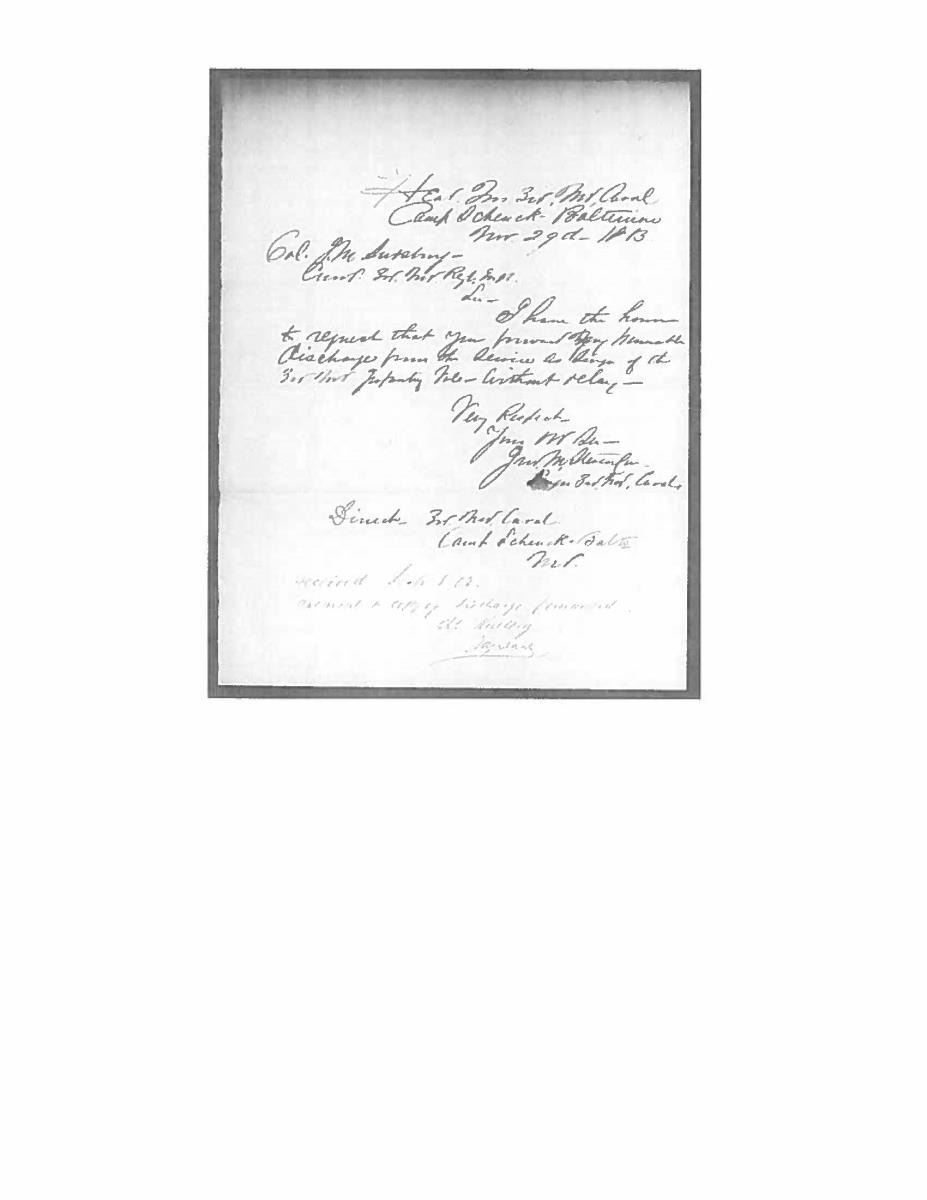 Head. Qrs 3rd. Md. Caval
Camp Schenck - Baltimore
Nov 29th - 1863
Col. J.M. Sudsburg -
Comd. 3rd. Md Regt. Inft.
Sir -
I have the honor
to request that you forward my Honorable
discharge from the Service as Surgn of the
3rd Md Infantry Vols - Without delay -
Very Respect -
Your Ob Ser -
Jno. M.
3rd. Md, Caval.
Direct - 3rd. Md. Caval.
Camp Schenck - Balto
Md.
received
copy of discharge forwarded